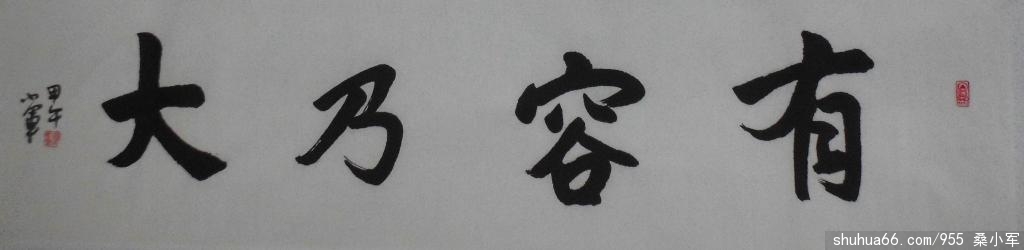 有容乃大
甲午
小军
shuhua66.com/955 桑小军